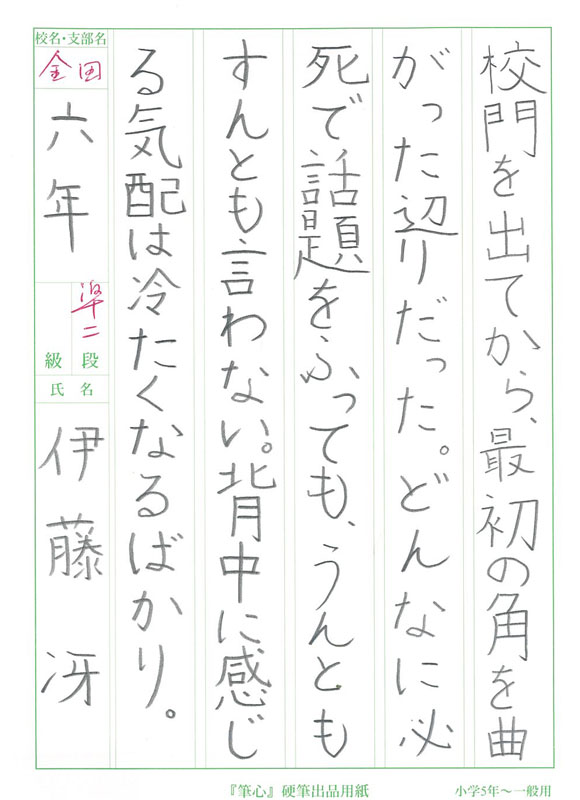 校門を出てから、最初の角を曲
がった辺りだった。どんなに必
死で話題をふっても、うんとも
すんとも言わない。背中に感じ
る気配は冷たくなるばかり。
校名・支部名
金田
六年
準二
級 段
氏 名
伊藤 冴
『筆心』硬筆出品用紙
小学5年〜一般用